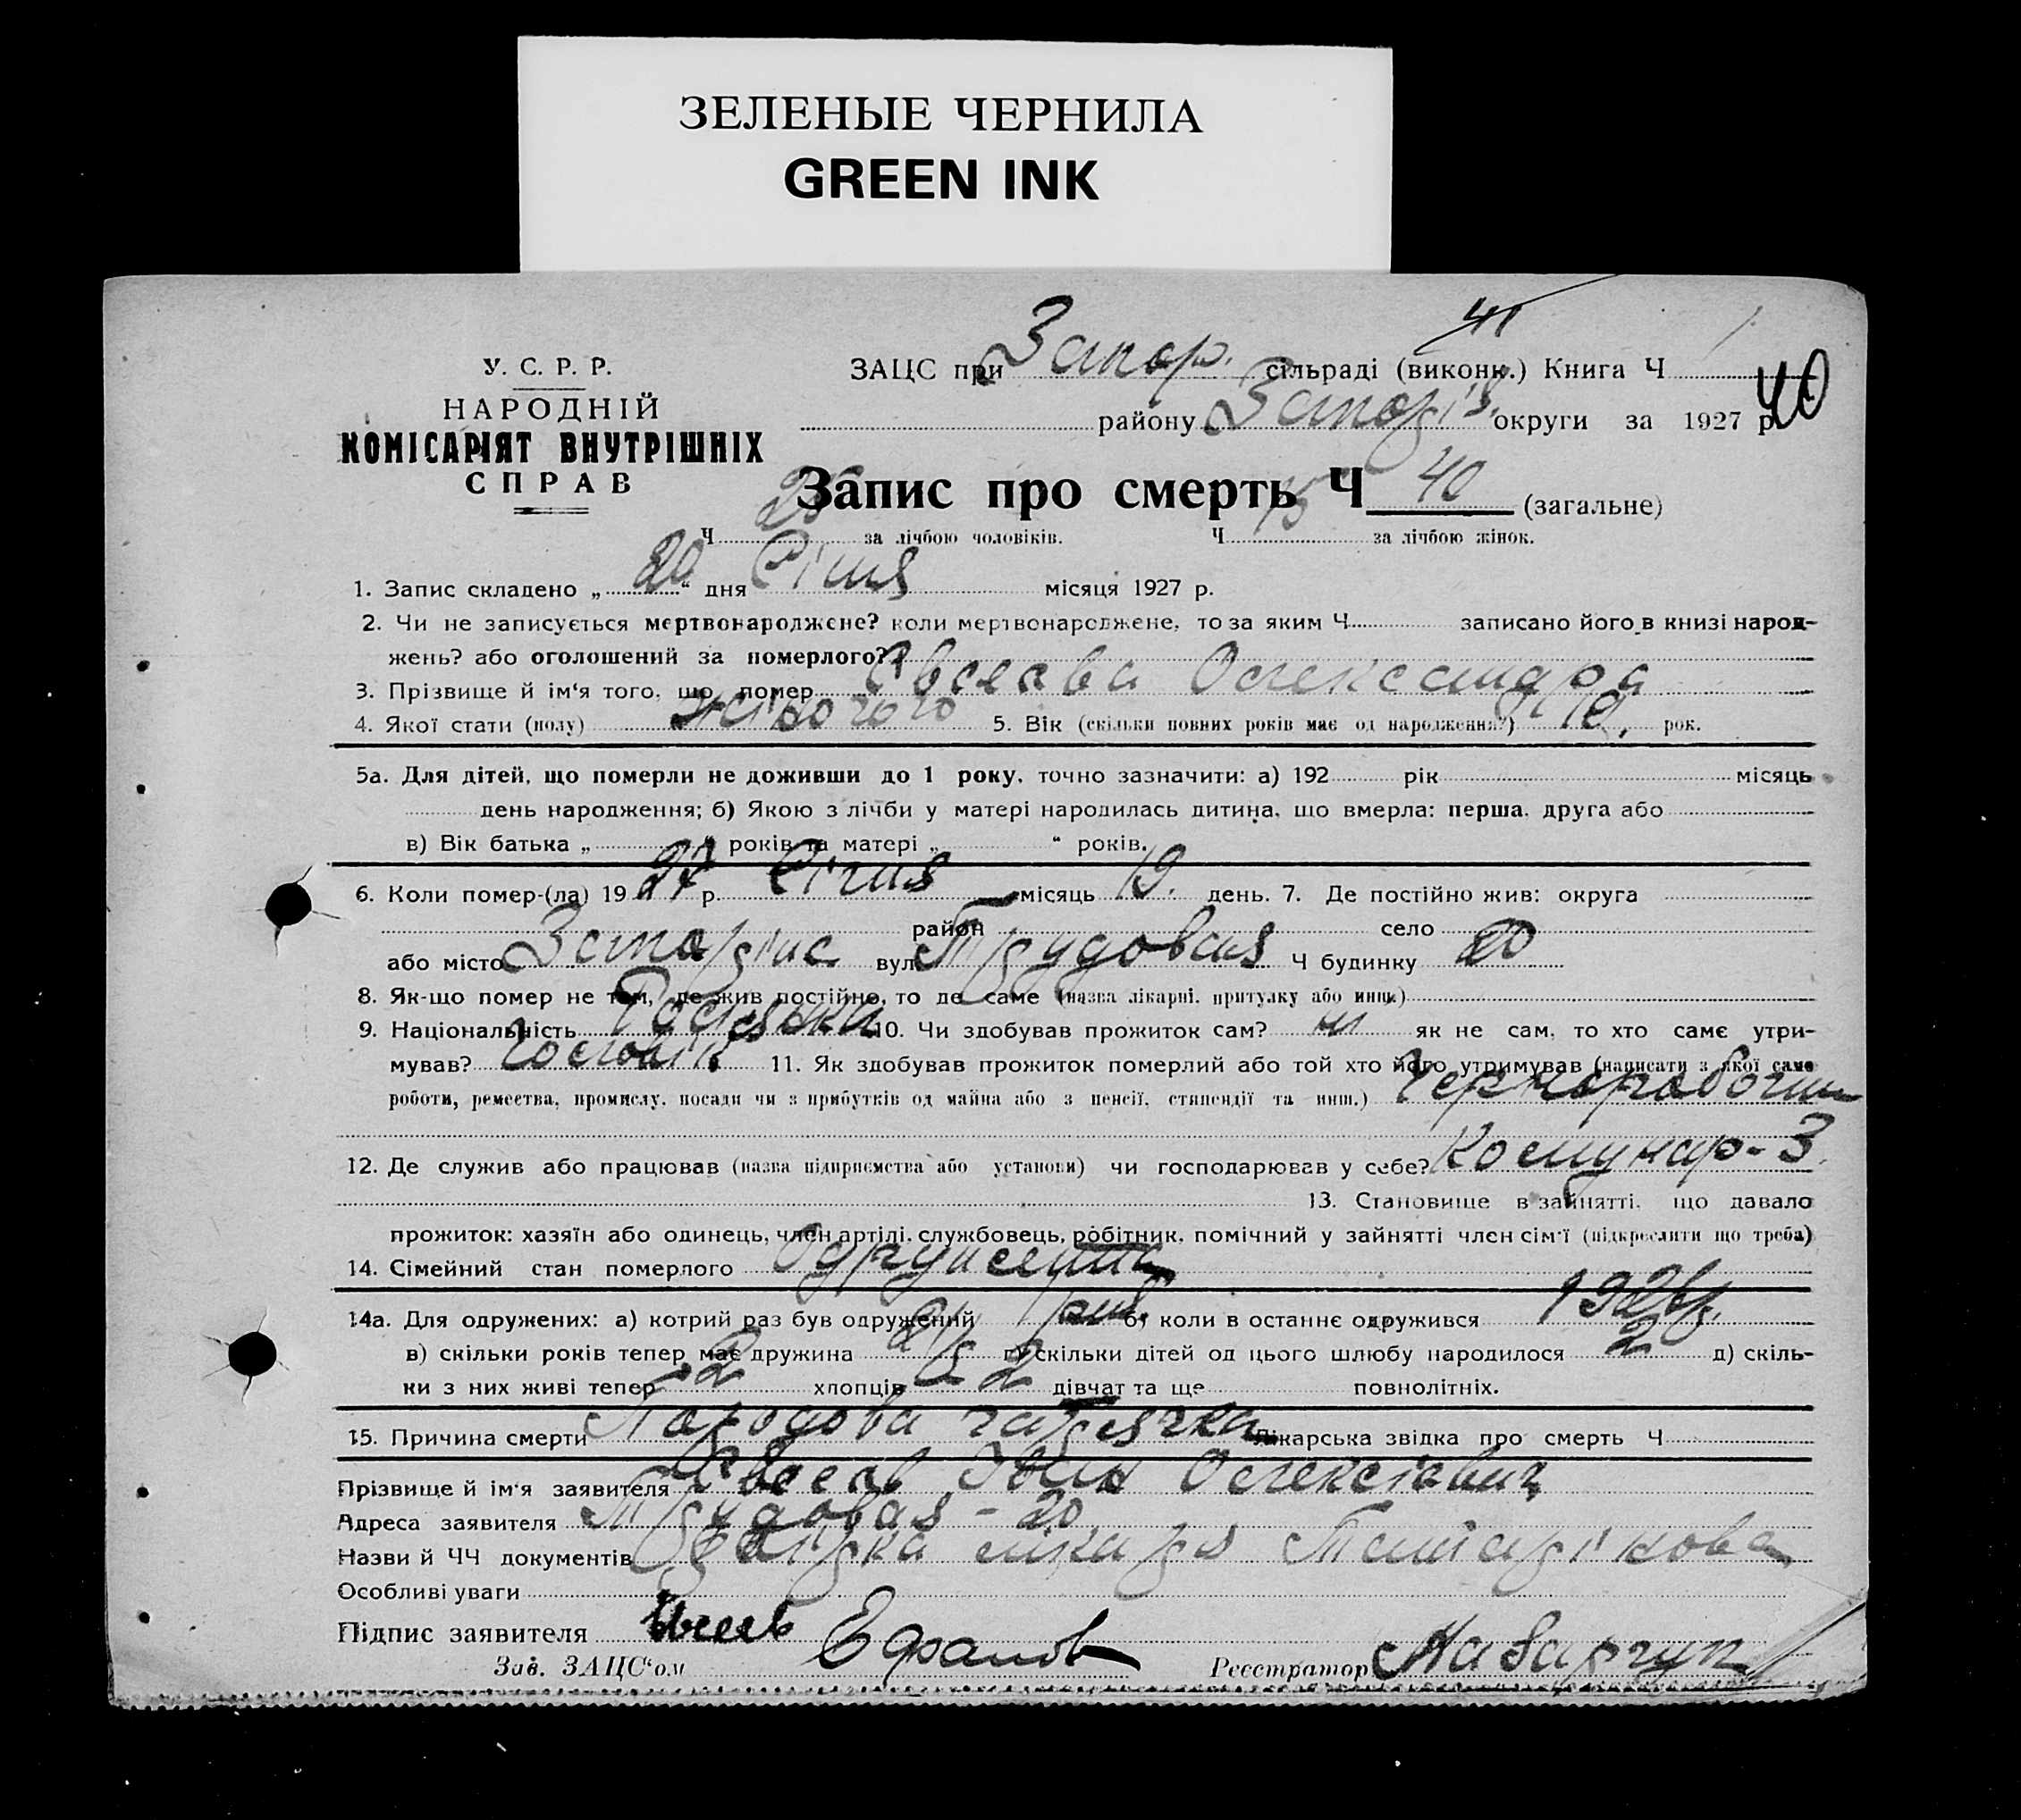 ЗЕЛЕНЫЕ ЧЕРНИЛА
GREEN INK
41
У. С. Р. Р.
НАРОДНІЙ
КОМІСАРІЯТ ВНУТРІШНІХ
СПРАВ
ЗАЦС при Запор. сільраді (виконк.) Книга Ч
40
району Запоріз. округи за 1927 р.
Запис про смерть Ч 40 (загальне)
Ч 25 за лічбою чоловіків. Ч 15 за лічбою жінок.
1. Запис складено „ 20 “ дня Січня місяця 1927 р.
2. Чи не записується мертвонароджене? коли мертвонароджене, то за яким Ч. записано його в книзі народ-
жень? або оголошений за померлого?
3. Прізвище й ім‘я того, що помер Євсеєва Олександра
4. Якої стати (полу) жіночого 5. Вік (скільки повних років має од народження?) рок.
5а. Для дітей, що померли не доживши до 1 року, точно зазначити: а) 192 рік місяць
день народження; б) Якою з лічби у матері народилась дитина, що вмерла: перша, друга або
в) Вік батька „ “ років та матері „ “ років.
6. Коли помер-(ла) 19 27 р. Січня місяць 19. день. 7. Де постійно жив: округа
район село
або місто Запоріжжє вул. Трудовая Ч будинку 20
8. Як-що помер не там, де жив постійно, то де саме (назва лікарні, притулку або инш.)
9. Національність 10. Чи здобував прожиток сам? ні як не сам, то хто саме утри-
мував? Чоловік 11. Як здобував прожиток померлий або той хто його утримував (написати з якої саме
роботи, ремества, промислу, посади чи з прибутків од майна або з пенсії, стипендії та инш.) Черноробочим
12. Де служив або працював (назва підприємства або установи) чи господарював у себе? Комунар-З
13. Становище в зайнятті, що давало
прожиток: хазяїн або одинець, член артілі, службовець, робітник, помічний у зайнятті член сім‘ї (підкреслити що треба)
14. Сімейний стан померлого Одружена
14а. Для одружених: а) котрий раз був одружений б) коли в останнє одружився
в) скільки років тепер має дружина г) скільки дітей од цього шлюбу народилося 2 д) скіль-
ки з них живі тепер 2 хлопців 2 дівчат та ще повнолітніх.
15. Причина смерти Породова гарячка Лікарська звідка про смерть Ч
Прізвище й ім‘я заявителя Євсеєв Іван Олексієвич
Адреса заявителя Трудовая - 20
Назви й ЧЧ документів лікаря
Особливі уваги
Підпис заявителя
Зав. ЗАЦС‘ом Реєстратор